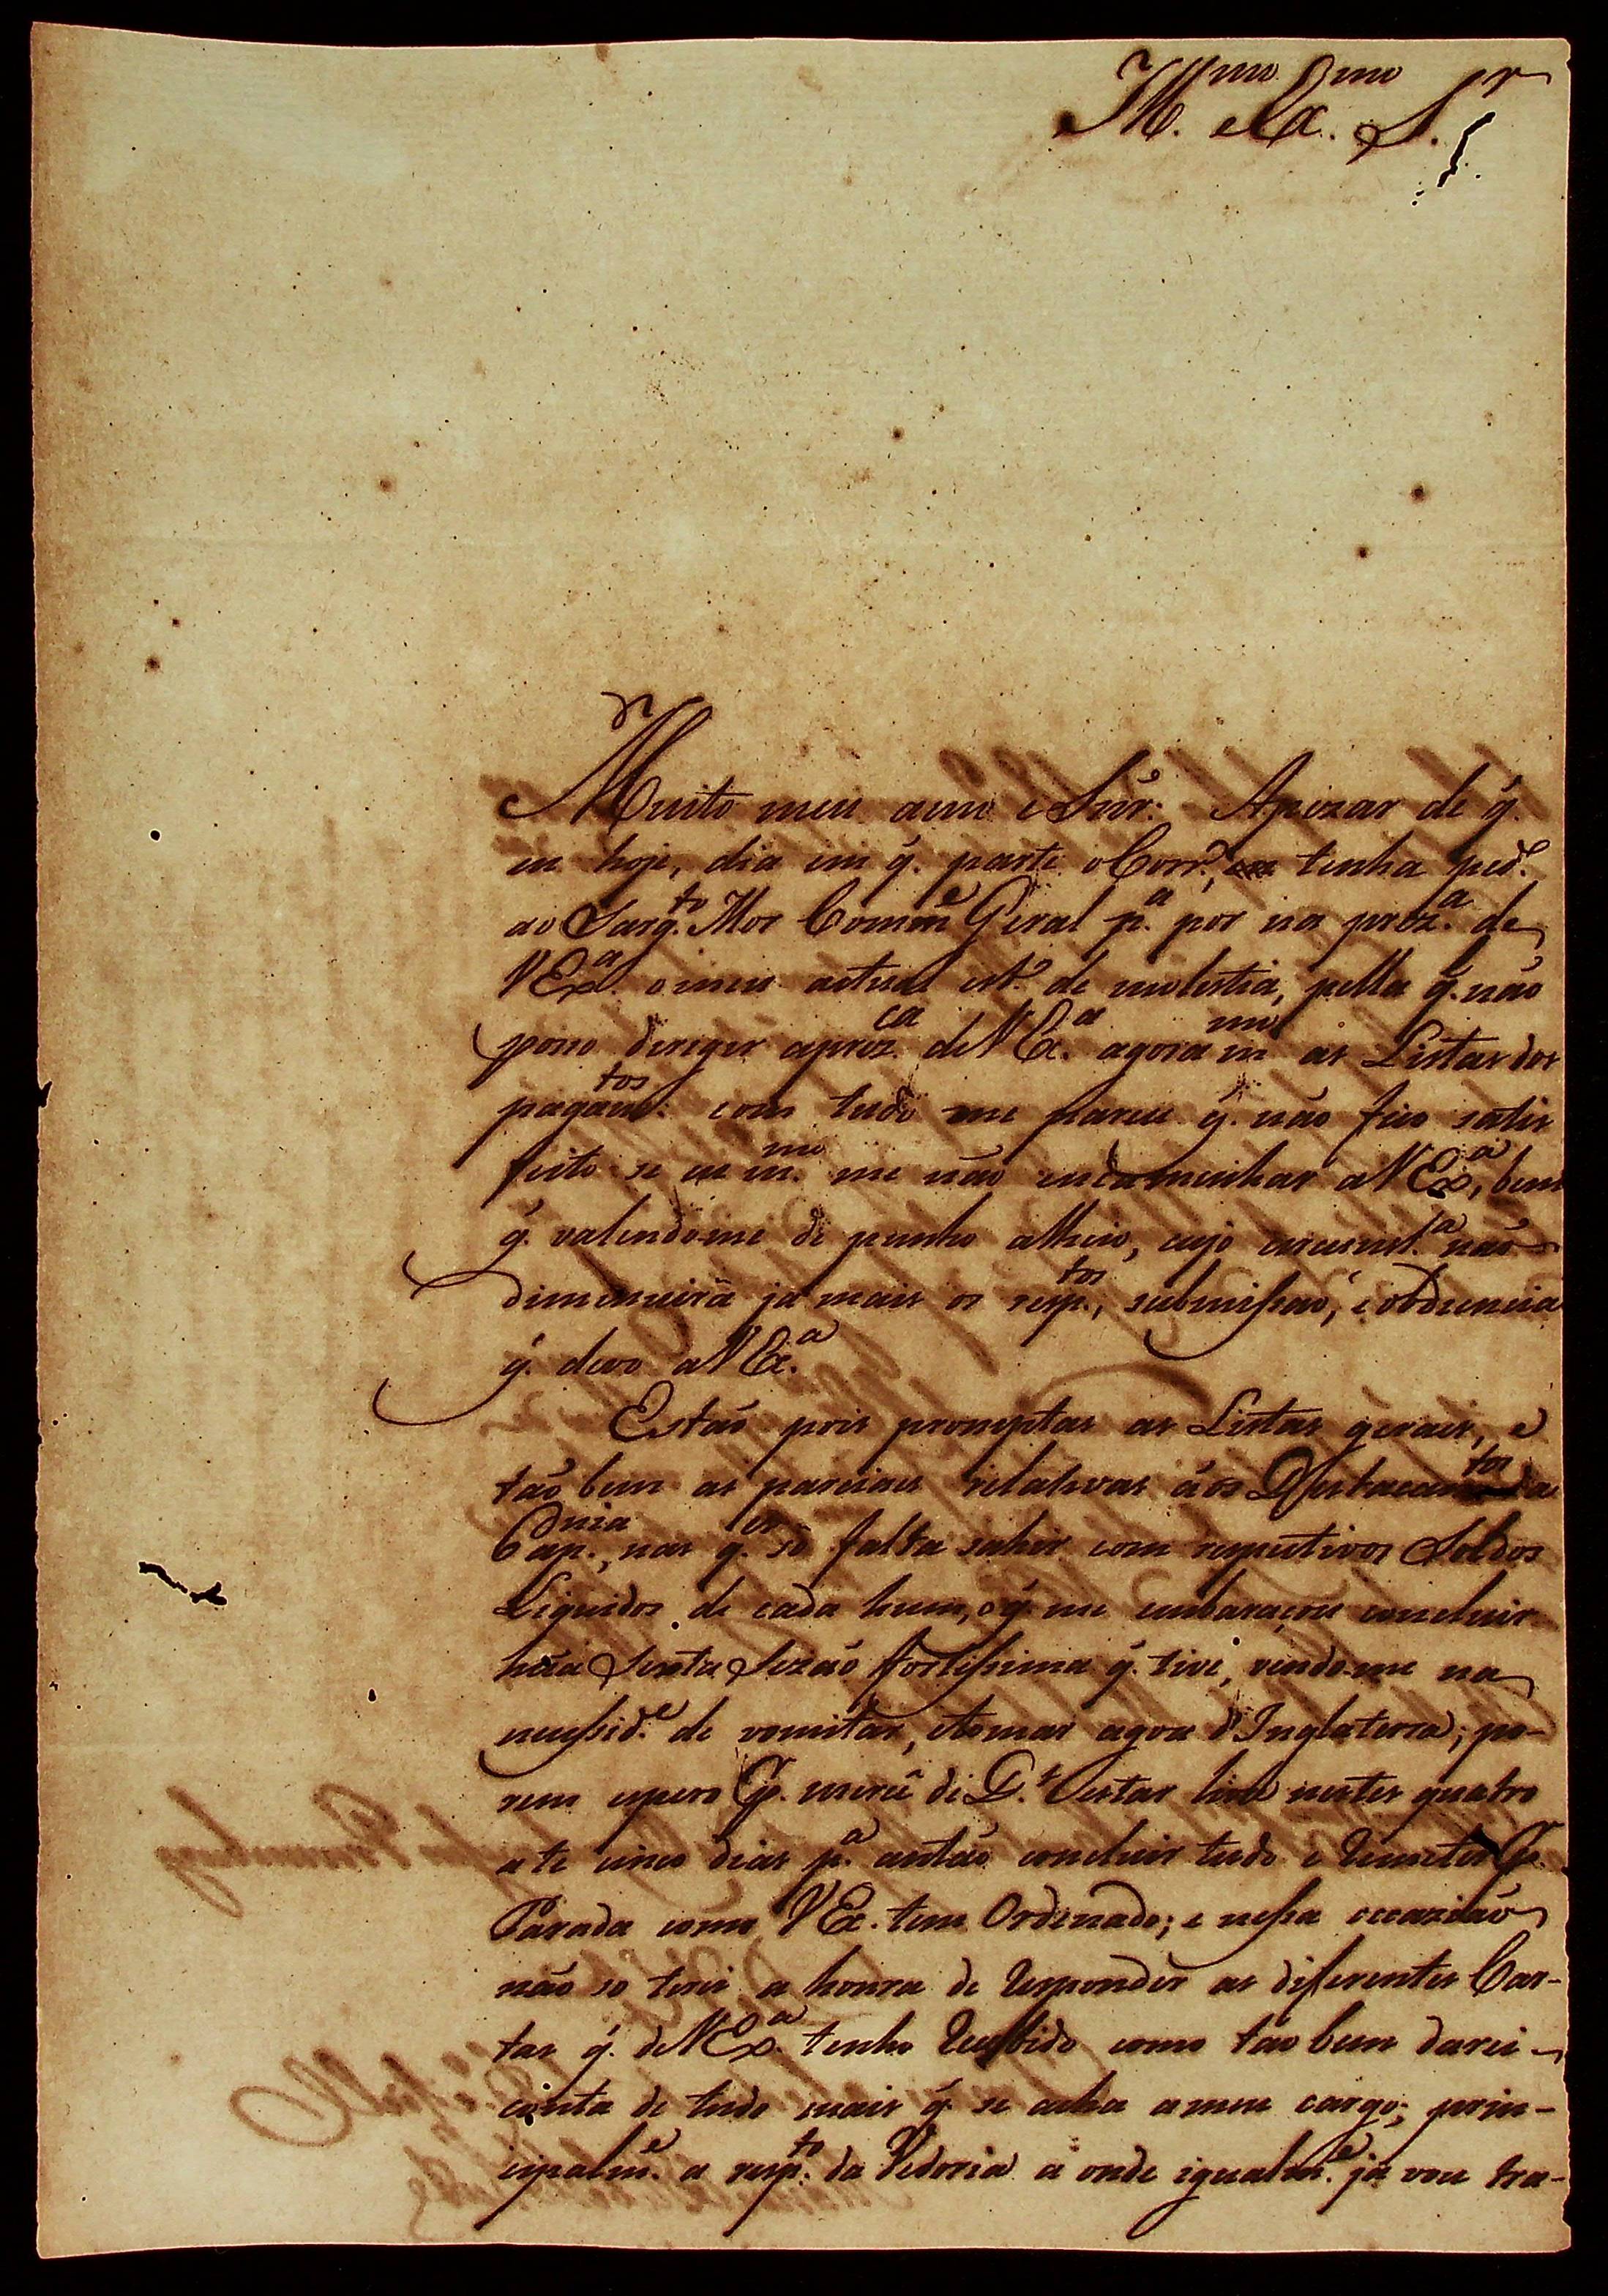 Ill.mo e Ex.mo S.r
Muito meu amo e Snr: Apezar de q̃.
eu hoje, dia em q̃. parte o Corr.o, tenha ped.o
ao Sarg.to Mor Comm.e Geral p.a por na prez.a de
V Ex.a o meu actual est.o de molestia, pella q̃. não
posso derigir a prez.ca de V Ex.a agora m.mo as Listas dos
pagam.tos com tudo me parece q̃. não fico satis
feito se eu m.mo me não encaminhar a V Ex.a, bem
q̃. valendo-me de punho alheio, cujo circunst.a não
dimenuirá já mais os resp.tos, submissão, e obdiencia
q̃. devo a V Ex.a
Estão pois promptas as Listas gerais, e
tão bem as parciaes relativas áos Destacam.tos da
Cap.nia, nas q̃. só falta sahir com respectivos Soldos
Liquidos de cada hum, o q̃. me embaraçou concluir
hũa Sezão fortissima q̃. tive, vendo-me na
necessid.e de vomitar, e tomar agoa d'Inglaterra; po-
rem espero p. mercê de D.s estar livre nestes quatro
até cinco dias p.a antão concluir tudo e Remeter p.
Parada como V Ex. tem Ordenado; e nessa occazião
não só terei a honra de Responder as diferentes Car-
tas q̃. de V Ex.a tenho Recebido como tão bem darei
conta de tudo mais q̃. se acha a meu cargo; prin-
cipalm.e a resp.to da Vedoria a onde igualm.e já vou tra-